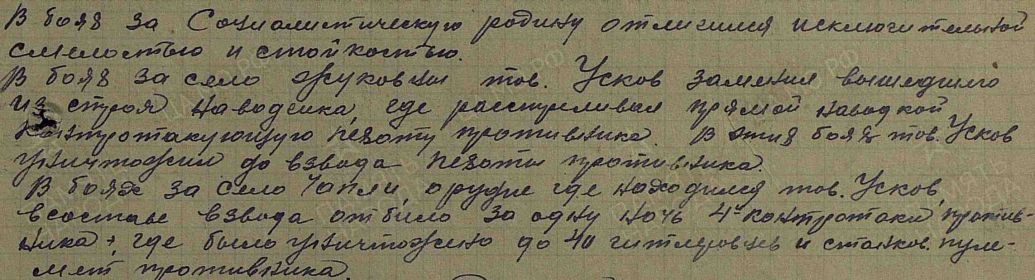 В боях за Социалистическую родину отличился исключительной
смелостью и стойкостью.
В боях за село Жуковцы тов. Усков заменил вышедшего
из строя наводчика, где расстреливал прямой наводкой
контротакующую пехоту противника. В этих боях тов. Усков
уничтожил до взвода пехоты противника.
В боях за село Чапли, орудие где находился тов. Усков,
в составе взвода отбило за одну ночь 4е контротаки против-
ника, где было уничтожено до 40 гитлеровцев и станков. пуле-
мет противника.